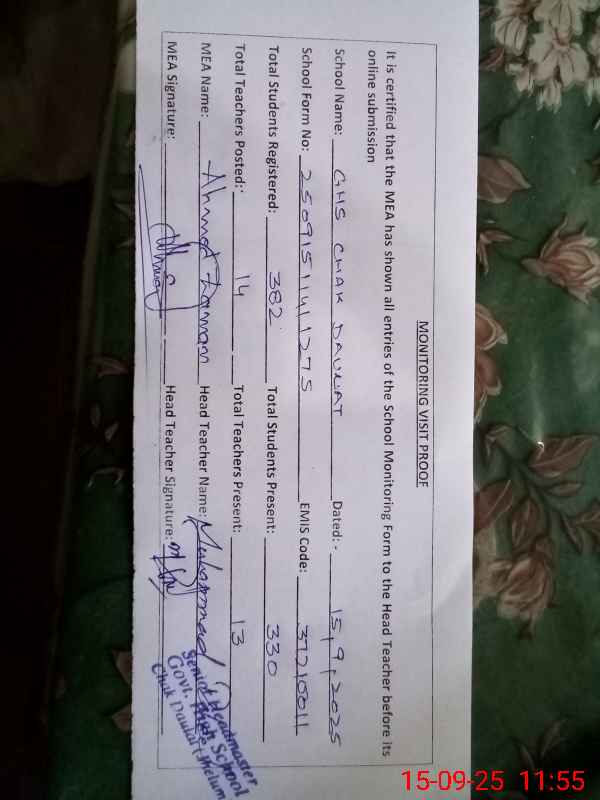 MONITORING VISIT PROOF
It is certified that the MEA has shown all entries of the School Monitoring Form to the Head Teacher before its
online submission
School Name: GHS CHAK DAULAT Dated: - 15,9,2025
School Form No: 25091511411275 EMIS Code: 37210011
Total Students Registered: 382 Total Students Present: 330
Total Teachers Posted: 14 Total Teachers Present: 13
MEA Name: Ahmad Head Teacher Name: Muhammad
MEA Signature: Head Teacher Signature:
Senior Headmaster
Govt. High School
Chak Daulat (Jhelum)
15-09-25 11:55